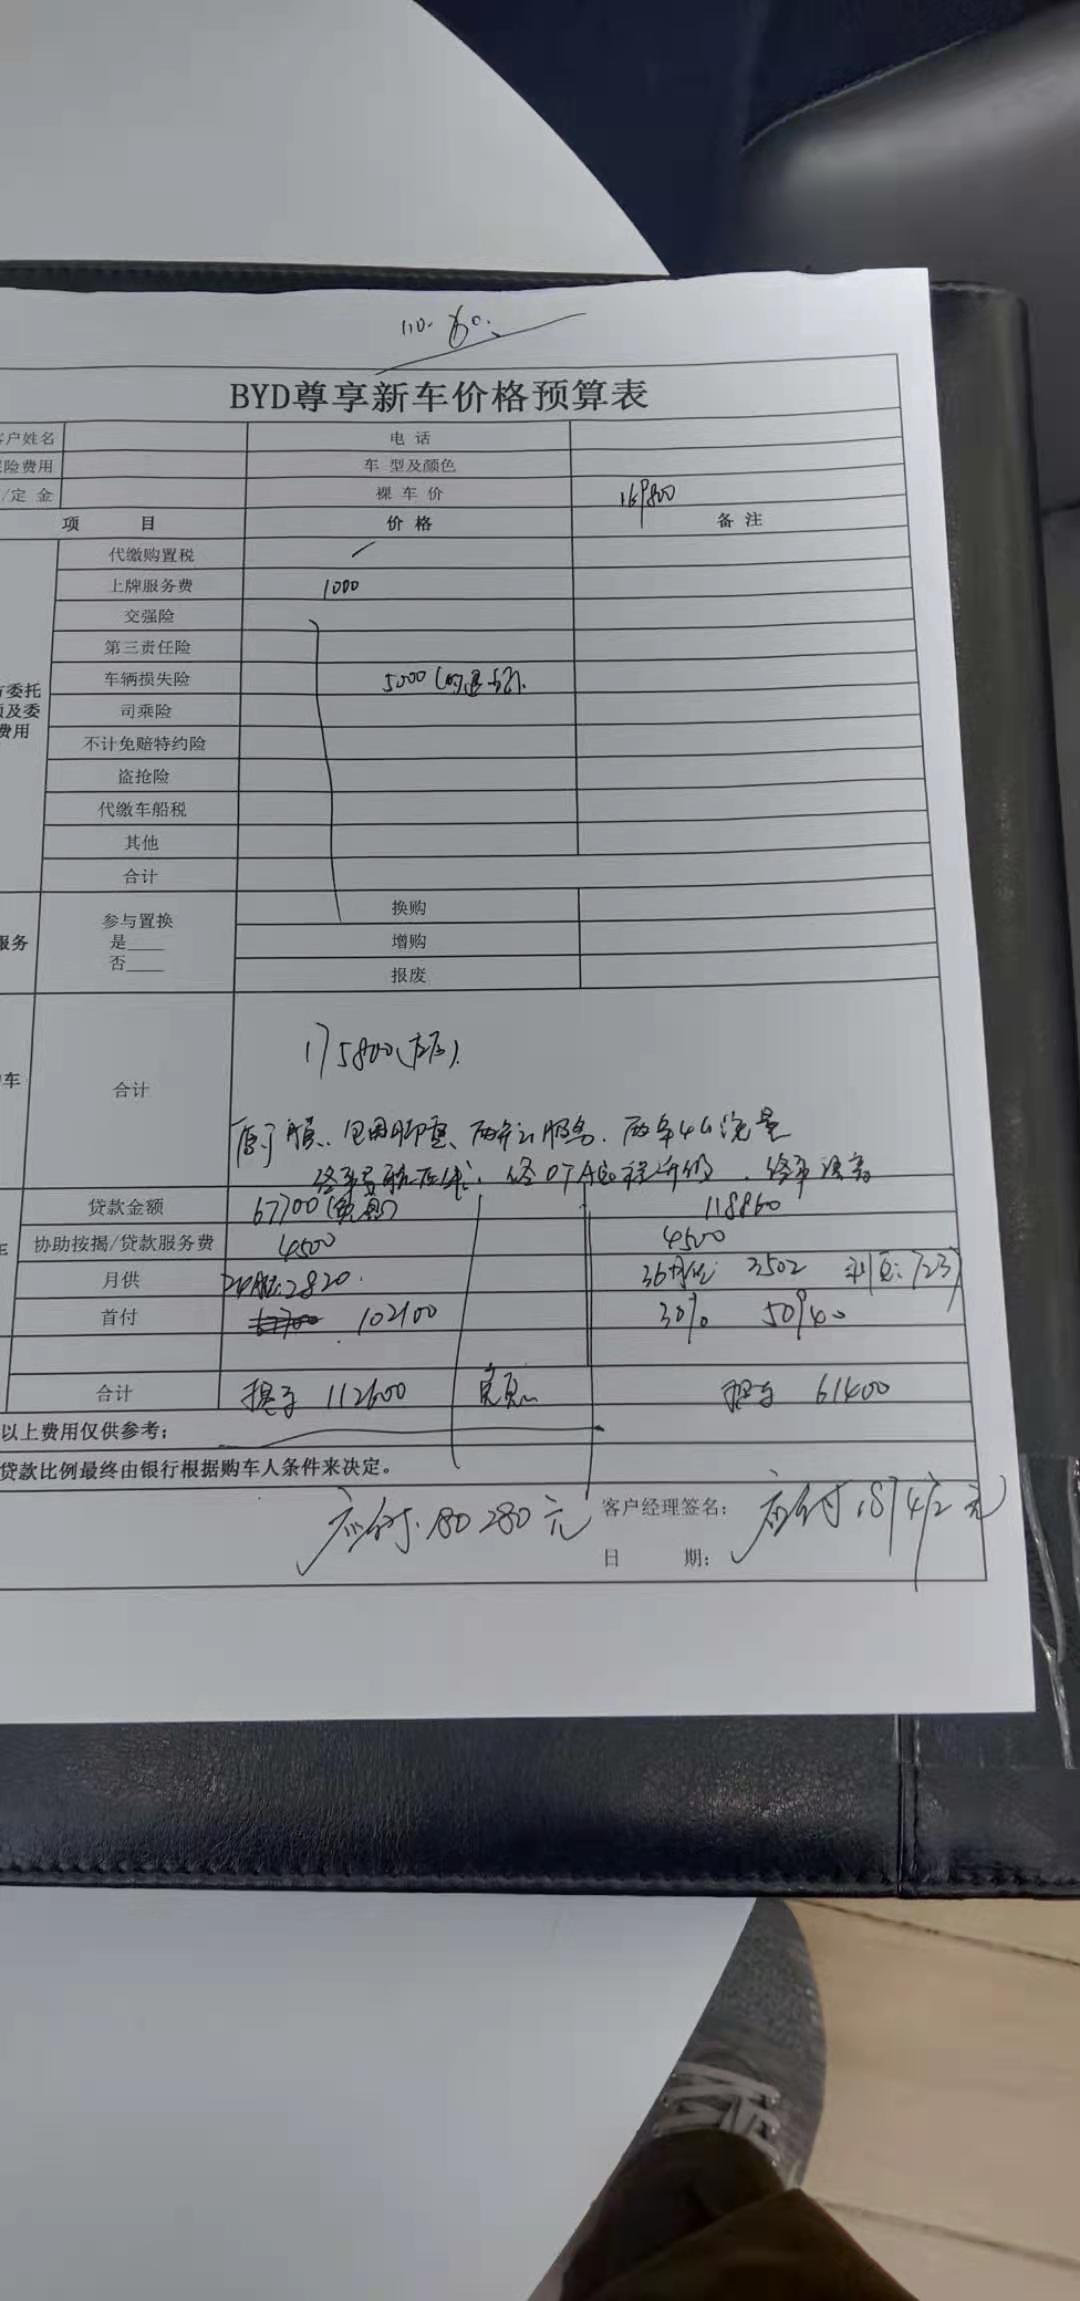 110.
BYD尊享新车价格预算表
客户姓名 电 话
险费用 车 型及颜色
/定 金 裸 车 价 169800
项 目 价 格 备 注
代缴购置税
上牌服务费 1000
交强险
第三责任险
委托 车辆损失险 5000
及委 司乘险
费用 不计免赔特约险
盗抢险
代缴车船税
其他
合计
服务 参与置换 换购
是____ 增购
否____ 报废
车 合计 175800
服务. 两年4G流量
贷款金额 67700(免息) 118860
协助按揭/贷款服务费 4500 4500
月供 2820. 36 3502 利息: 723
首付 102100 30% 50940
合计 提车 112600 免息 提车 61400
以上费用仅供参考;
贷款比例最终由银行根据购车人条件来决定。
应付: 180280元 客户经理签名: 应付: 187472元
日 期: